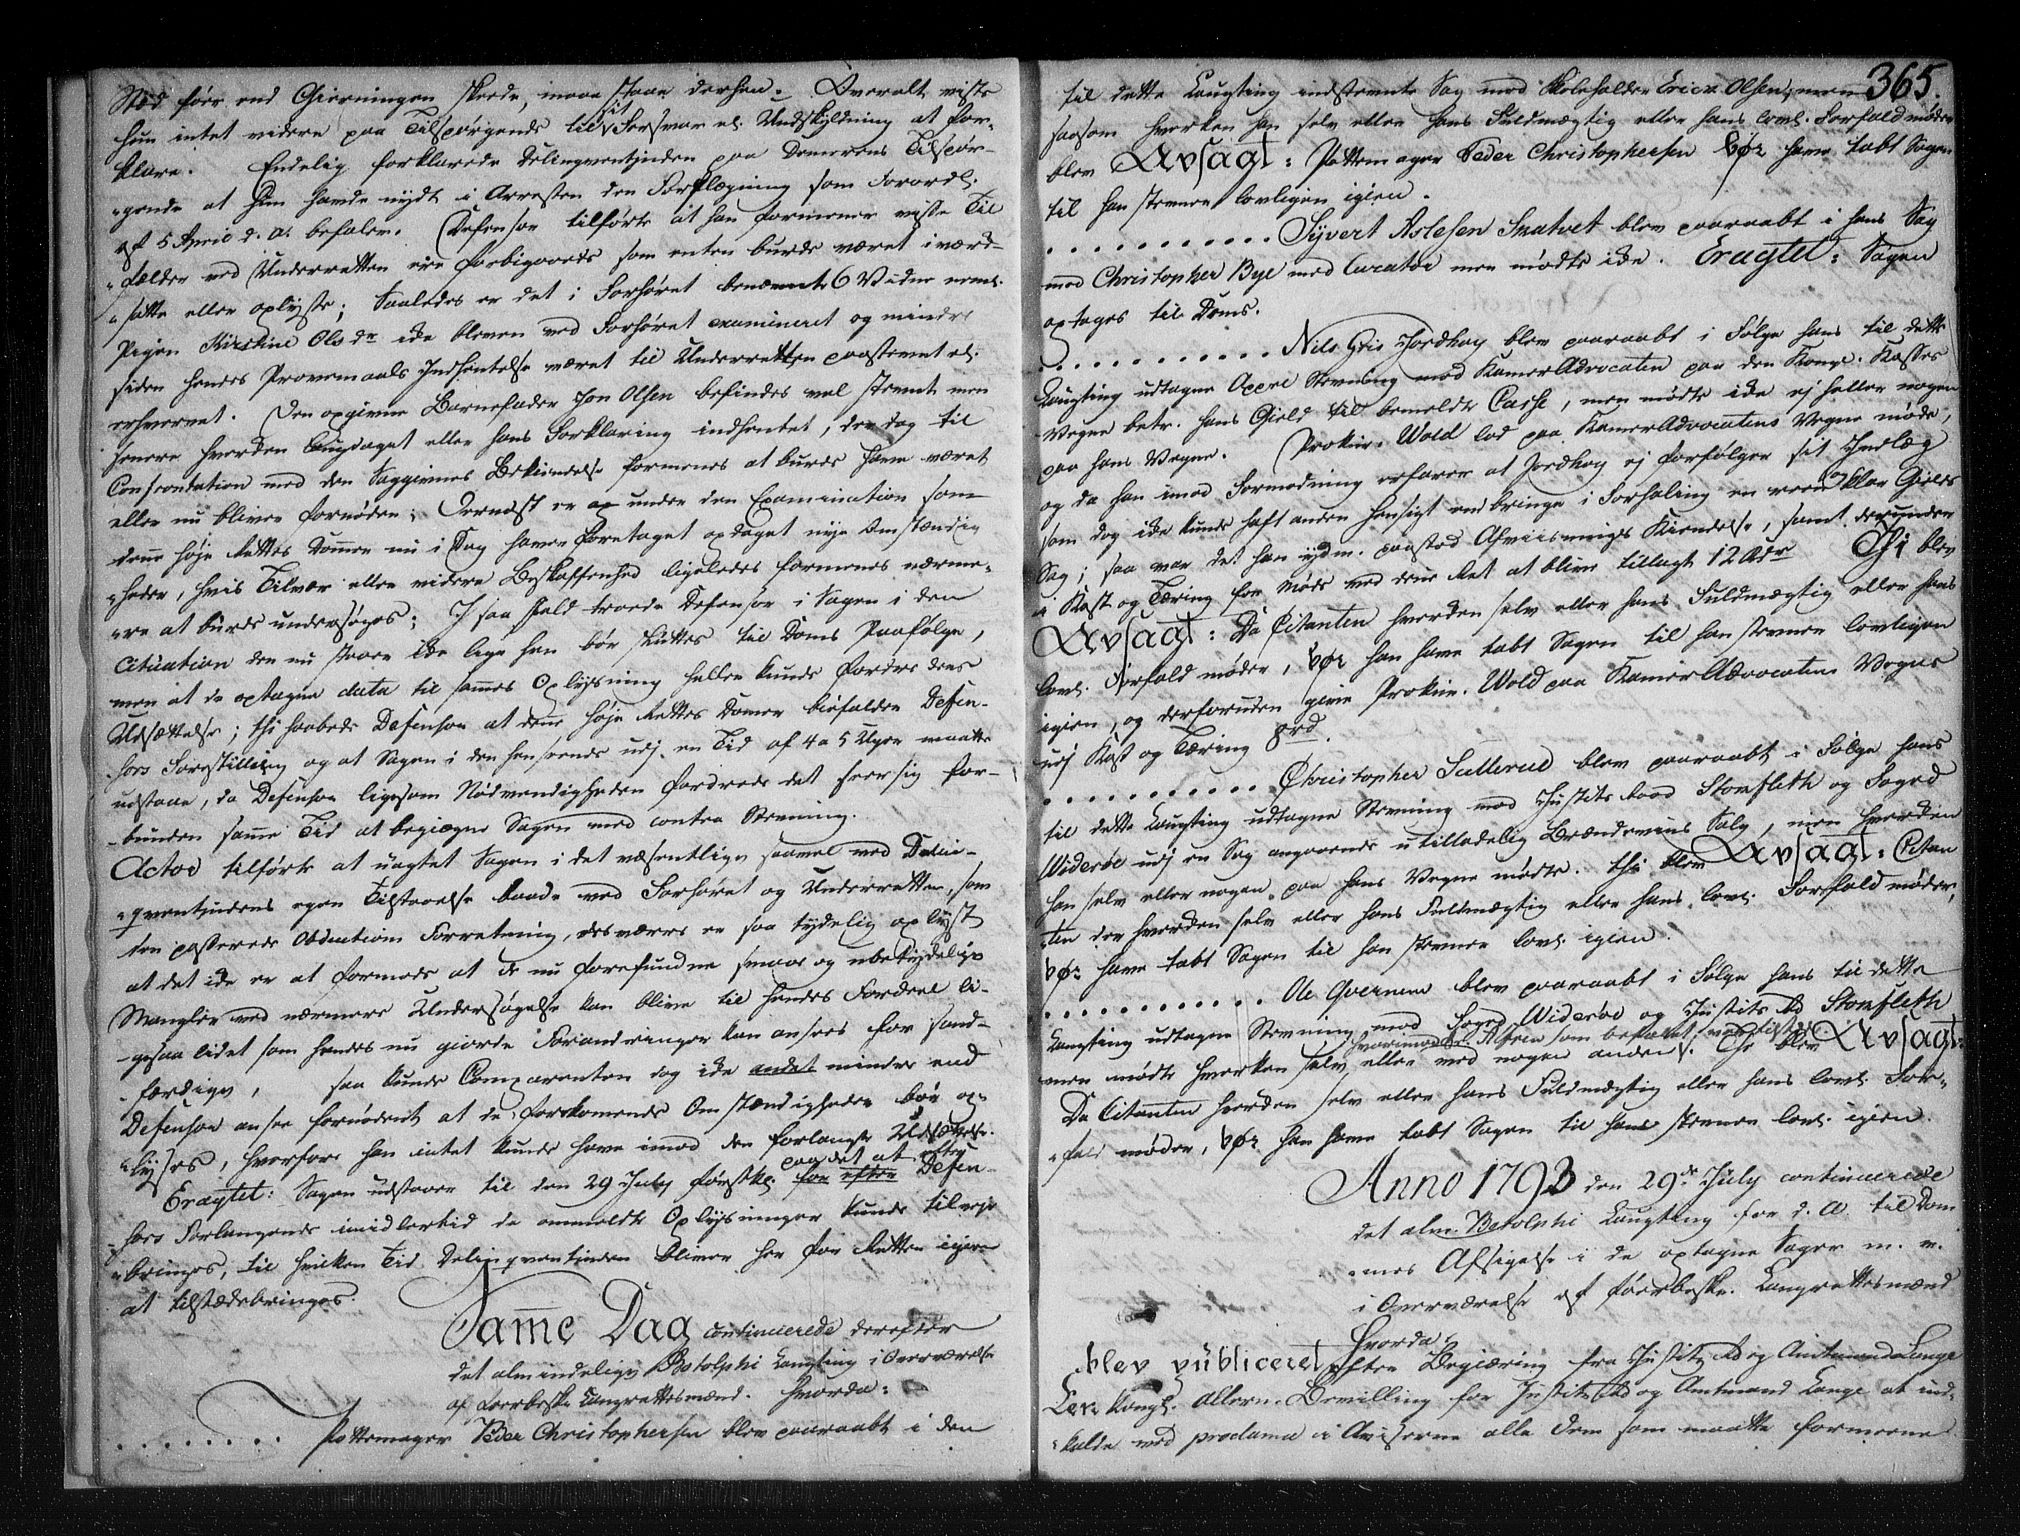 Stød føer end Gierningen skeede, maae staae derhen. Overalt viste
hun intet videre paa Tilspørgende til sit Forsvar el. Undskyldning at for-
klare. Endelig forklarede Delinqventinden paa Dommerens Tilspør-
gende at hun havde nydt i Arresten den Forplægning som Forordn.
af 5 April d. A. befaler. Defensor tilførte at han formener visse Til
fælder ved Underretten ere forbigaaede som enten burde været iværk-
satte eller oplyste; Saaledes er det i Forhøret benævnte 6 Vidne neml.
Pigen Kirstine Olsdr ikke bleven ved Forhøret examineret og mindre
siden hendes Provemaals Indhentelse været til Underretten paastevnt el.
erhvervet. Den opgivne Barnefader Jon Olsen befindes vel stevnt men
senere hverken Eragtet eller hans Forklaring indhentet, der dog til
Confrontation med den Saggivnes Bekiendelse formenes at burde have været
eller nu bliver fornøden; Dernæst er og under den Examination som
denne høje Rettes Dommer nu i Dag haver foretaget opdaget nye Omstændig
heder, hvis Tilvær eller videre Beskaffenhed ligeledes formenes nærme-
re at burde undersøges; I saa Fald troede Defensor i Sagen i den
Cituation den nu staaer ikke lige hen bør skuttes til Doms Paafølge,
men at de optagne data til sammes Oplysning heller kunde fordre dens
Udsættelse; thi haabede Defensor at denne høje Rettes Dommer bifalder Defen-
sors Forestilling og at Sagen i den henseende udj en Tid af 4 a 5 Uger maatte
udstaae, da Defensor ligesom Nødvendigheden fordrede det seer sig for-
bunden samme Tid at begiegne Sagen med contra Stevning.
Actor tilførte at uagtet Sagen i det væsentlige saavel ved Delin-
qventindens egen Tilstaaelse baade ved Forhøret og Underretten, som
den passerede Obductions Forretning, desværre er saa tydelig oplyst
at det ikke er at formode at de nu forefundne smaae og ubetydelige
Mangler ved nærmere Undersøgelse kan blive til hendes Fordeel li-
gesaa lidet som hendes nu giorde Forandringer kan ansees for sand-
færdige, saa kunde Comparenten dog ikke andet mindre end
Defensor ansee fornødent at de forekommende Omstændigheder bør op-
lyses, hvorfore han intet kunde have imod den forlangte Udsættelse.
Eragtet: Sagen udstaaer til den 29 July førstk. paa det at efter Defen-
sors Forlangende imidlertid de ommeldte Oplysninger kunde tilveje
bringes, til hvilken Tid Delinqventinden bliver her for Retten igien
at tilstædebringes.
Samme Dag continuerede derefter
det almindelige Botolphi Laugting i Overværelse
af foerbeskr. Laugrettesmænd. Hvorda:
Pottemager Peder Christophersen blev paaraabt i den
365.
til dette Laugting indstevnte Sag mod Skoleholder Erick Olsen, men
saasom hverken han selv eller hans Fuldmægtig eller hans lovl. Forfald møder
blev Avsagt: Pottemager Peder Christophersen bør have tabt Sagen
til han stevner lovligen igien.
Syvert Aslesen Snatvet blev paaraabt i hans Sag
mod Christopher Bye med Curator men mødte ikke. Eragtet: Sagen
optages til Doms.
Nils Gris Jordhøy blev paaraabt i Følge hans til dette
Laugting udtagne Appel Stevning mod KammerAdvocaten paa den Kongl. Kasses
Vegne betr. hans Gield til bemeldte Casse, men mødte ikke ej heller nogen
paa hans Vegne. Prokur. Wold lod paa KammerAdvocatens Vegne møde,
og da han imod Formodning erfarer at Jordhøy ej forfølger sit Indlæg
som dog ikke kunde haft anden Hensigt end bringe i Forhaling en reen og klar Gields
Sag; saa var det han ydm. paastod Afviisnings Kiendelse, samt derunder
i Kost og Tæring for Møde ved denne Ret at blive tillagt 12 Rdr Thi blev
Avsagt: Da Citanten hverken selv eller hans Fuldmægtig eller hans
lovl. Forfald møder, bør han have tabt Sagen til han stevner lovligen
igien, og derforuden give Prokur. Wold paa KammerAdvocatens Vegne
udj Kost og Tæring 8rd.
Christopher Sullerud blev paaraabt i Følge hans
til dette Laugting udtagne Stevning mod Justits Raad Stomfleth og Foged
Widerøe udj en Sag angaaende utilladelig Brændeviins Salg, men hverken
han selv eller nogen paa hans Vegne mødte. thi blev Avsagt: Citan
ten der hverken selv eller hans Fuldmægtig eller hans lovl. Forfald møder,
bør have tabt Sagen til han stevner lovl. igien.
Ole Qverneen blev paaraabt i Følge hans til dette
Laugting udtagne Stevning mod Foged Widerøe og Justits Rd Stomfleth
men mødte hverken selv eller ved nogen anden. Thi blev Avsagt:
Da Citanten hverken selv eller hans Fuldmægtig eller hans lovl. For-
fald møder, bør han have tabt Sagen til hand stevner lovl. igien.
Anno 1793 den 29de July continuerede
det alm. Botolphi Laugting for d. A. til Dom
mes Afsigelse i de optagne Sager m. v.
i Overværelse af foerbeskr. Laugrettesmænd
Hvorda:
blev publiceret efter Begiæring fra Justitz Rd og Amtmand Lange
Kongl. allern. Bevilling for Justits Rd og Amtmand Lange at ind-
kalde ved proclama i Aviserne alle dem som maatte formeene